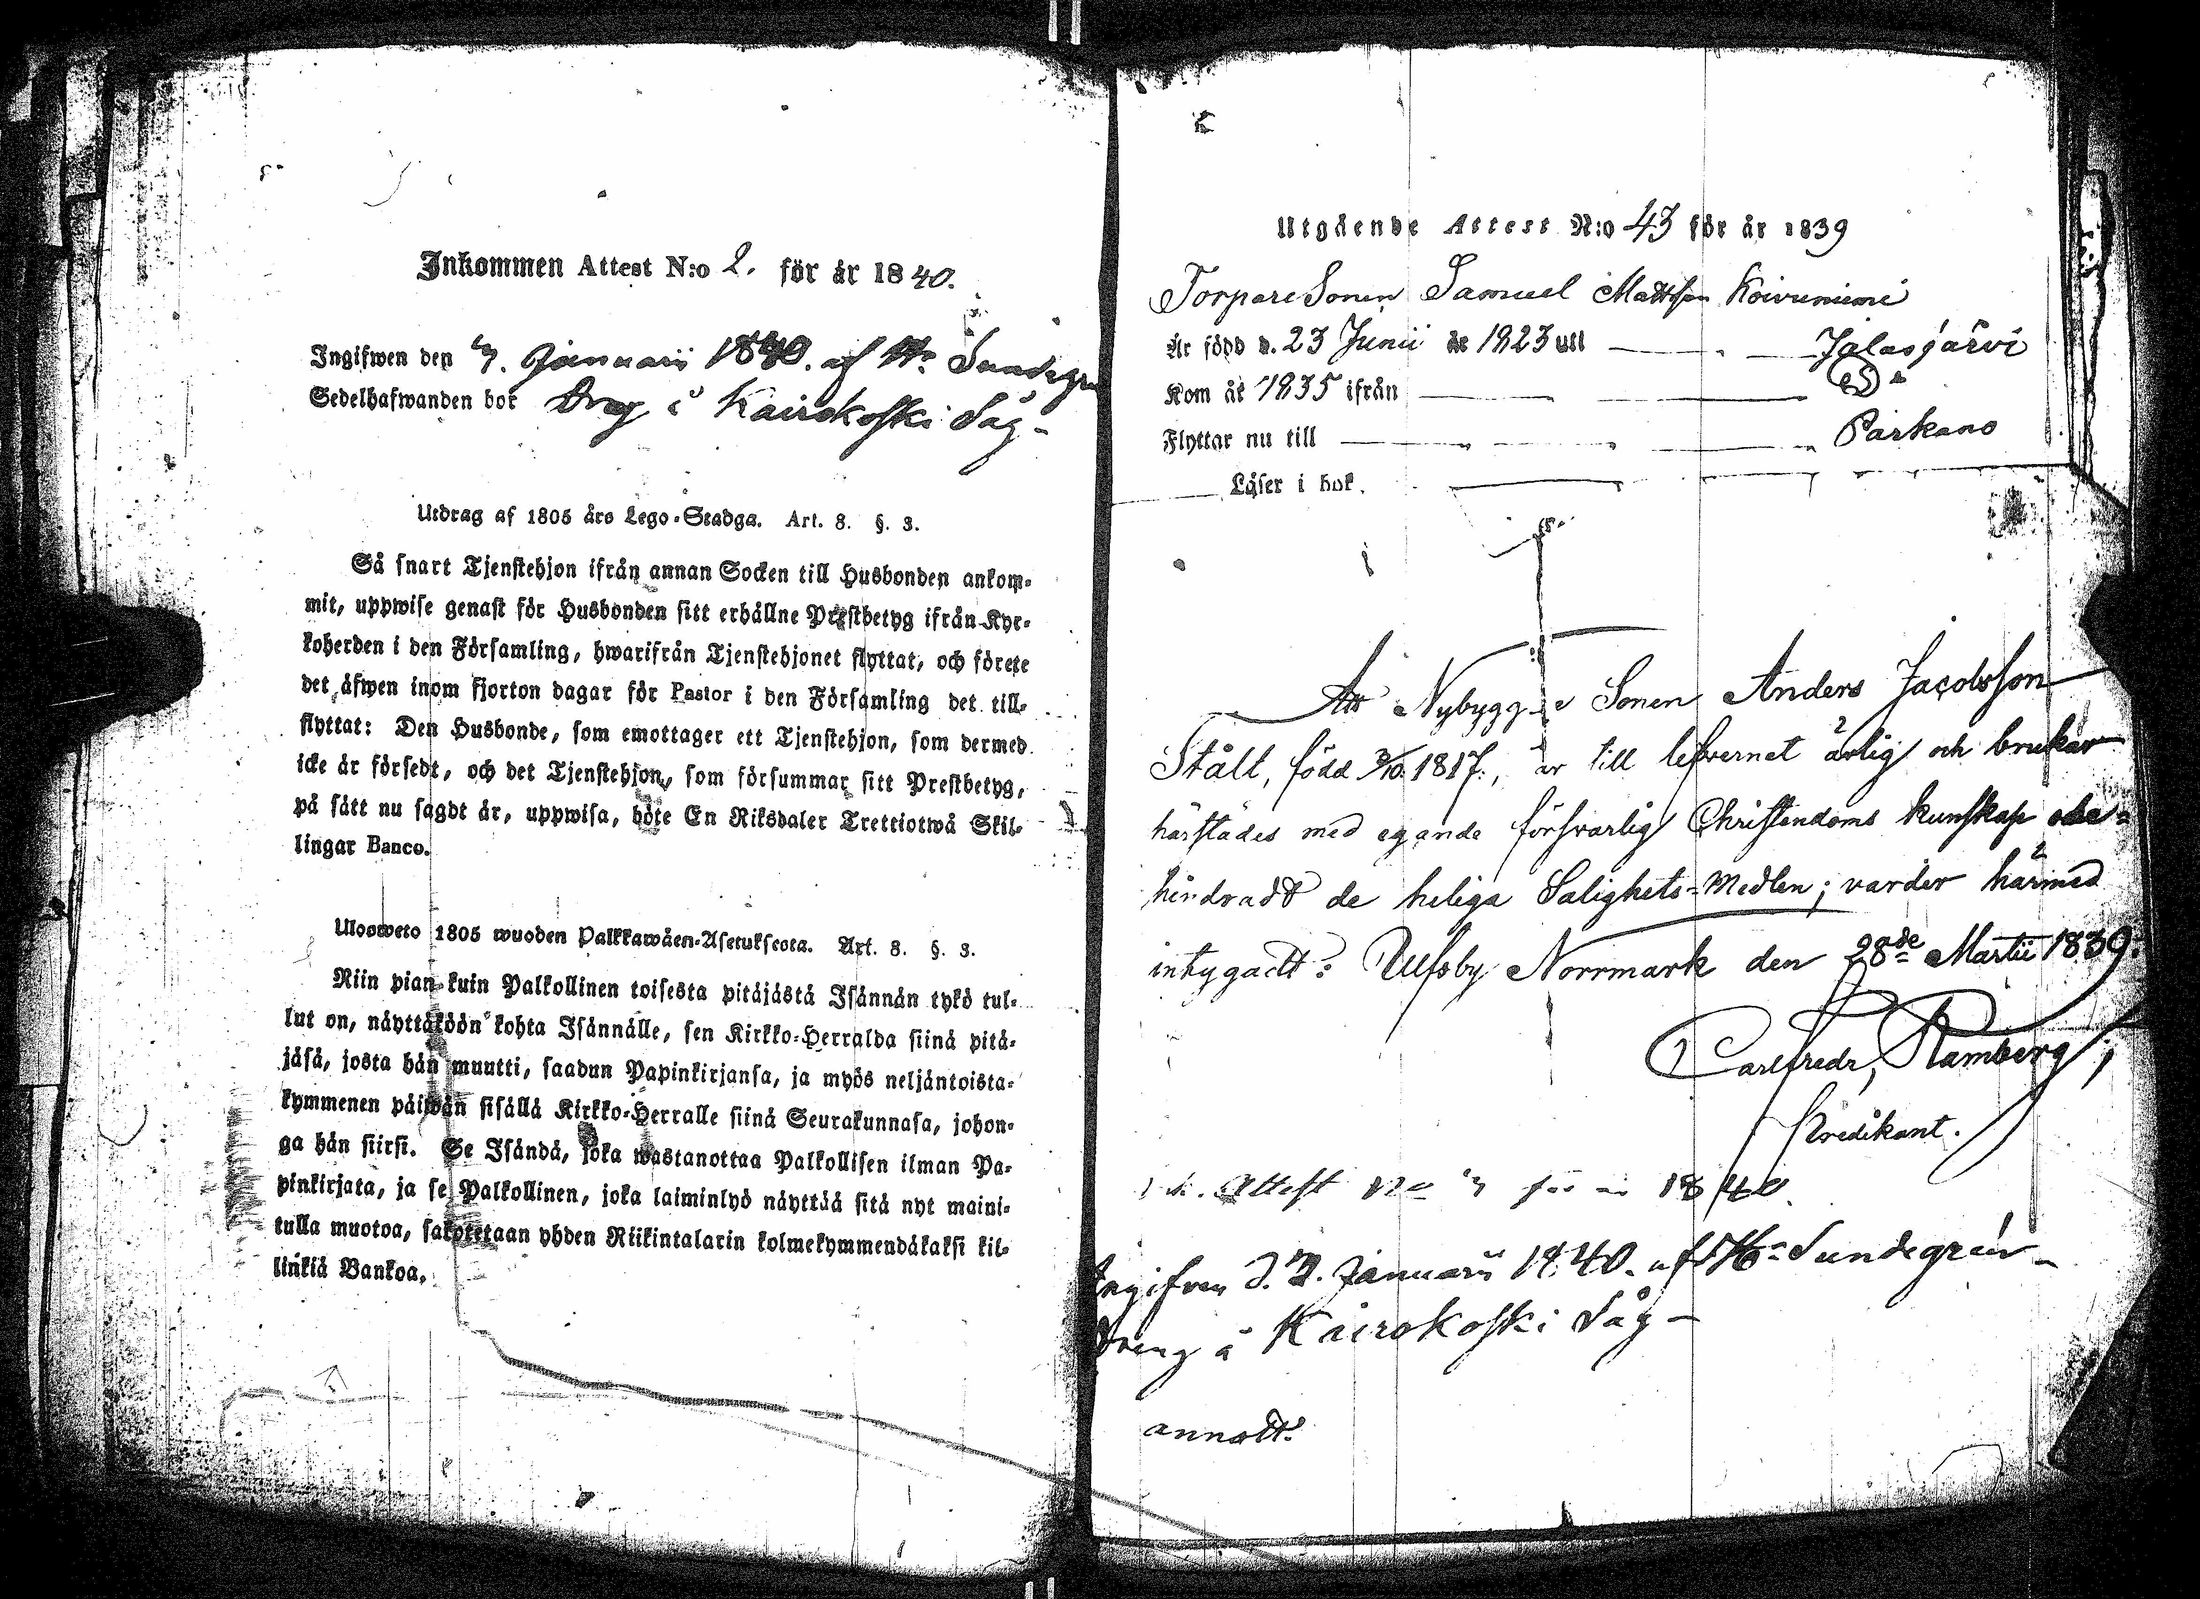 Inkommen Attest N:o 2. för år 1840.
Ingifwen den 7. Januarii 1840. af Hr Sundegren
Sedelhafwanden bor Dreng i Kairokoski Såg-
Utdrag af 1805 års Lego-Stadga. Art. 8. §. 3.
Så snart Tjenstehjon ifrån annan Socken till Husbonden ankom-
mit, uppwise genast för Husbonden sitt erhållne Prestbetyg ifrån Kyr-
koherden i den Församling, hwarifrån Tjenstehjonet flyttat, och förete
det äfwen inom fjorton dagar för Pastor i den Församling det till-
flyttat: Den Husbonde, som emottager ett Tjenstehjon, som dermed
icke är försedt, och det Tjenstehjon, som försummar sitt Prestbetyg,
på sätt nu sagdt är, uppwisa, böte En Riksdaler Trettiotwå Skil-
lingar Banco.
Ulosweto 1805 wuoden Palkkawäen-Asetuksesta. Art. 8. §. 3.
Niin pian kuin Palkollinen toisesta pitäjästä Isännän tykö tul-
lut on, näyttäköön kohta Isännälle, sen Kirkko-Herralda siinä pitä-
jäsä, josta hän muutti, saadun Papinkirjansa, ja myös neljäntoista-
kymmenen päiwän sisällä Kirkko-Herralle siinä Seurakunnasa, johon-
ga hän siirsi. Se Isändä, joka wastanottaa Palkollisen ilman Pa-
pinkirjata, ja se Palkollinen, joka laiminlyö näyttää sitä nyt maini-
tulla muotoa, sakotetaan yhden Riikintalarin kolmekymmendäkaksi kil-
linkiä Bankoa.
Utgående Attest N:o 43 för år 1839
Torpare Sonen Samuel Mattsson Koivuniemi
Är född d. 23 Junii år 1823 uti Jalasjärvi
Kom år 1835 ifrån
Flyttar nu till Parkano
Läser i bok.
Att Nybygg e Sonen Anders Jacobsson
Stålt, född 3/10 1817, är till lefvernet ärlig och brukar
härstädes med egande försvarlig Christendoms kunskap obe-
hindradt de heliga Salighets-Medlen; varder härmed
intygadt: Ulfsby Norrmark den 28de Martii 1839.
Carlfredr, Ramberg
Predikant.
Attest No 1840.
Ingifven d. 7. Januarii 1840. af Hr Sundegrén-
Dreng å Kairokoski Såg-
annott.